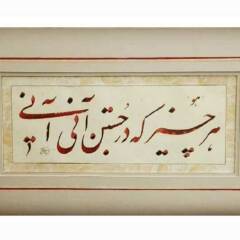 هو
هر چیز که در جستن آنی آنی